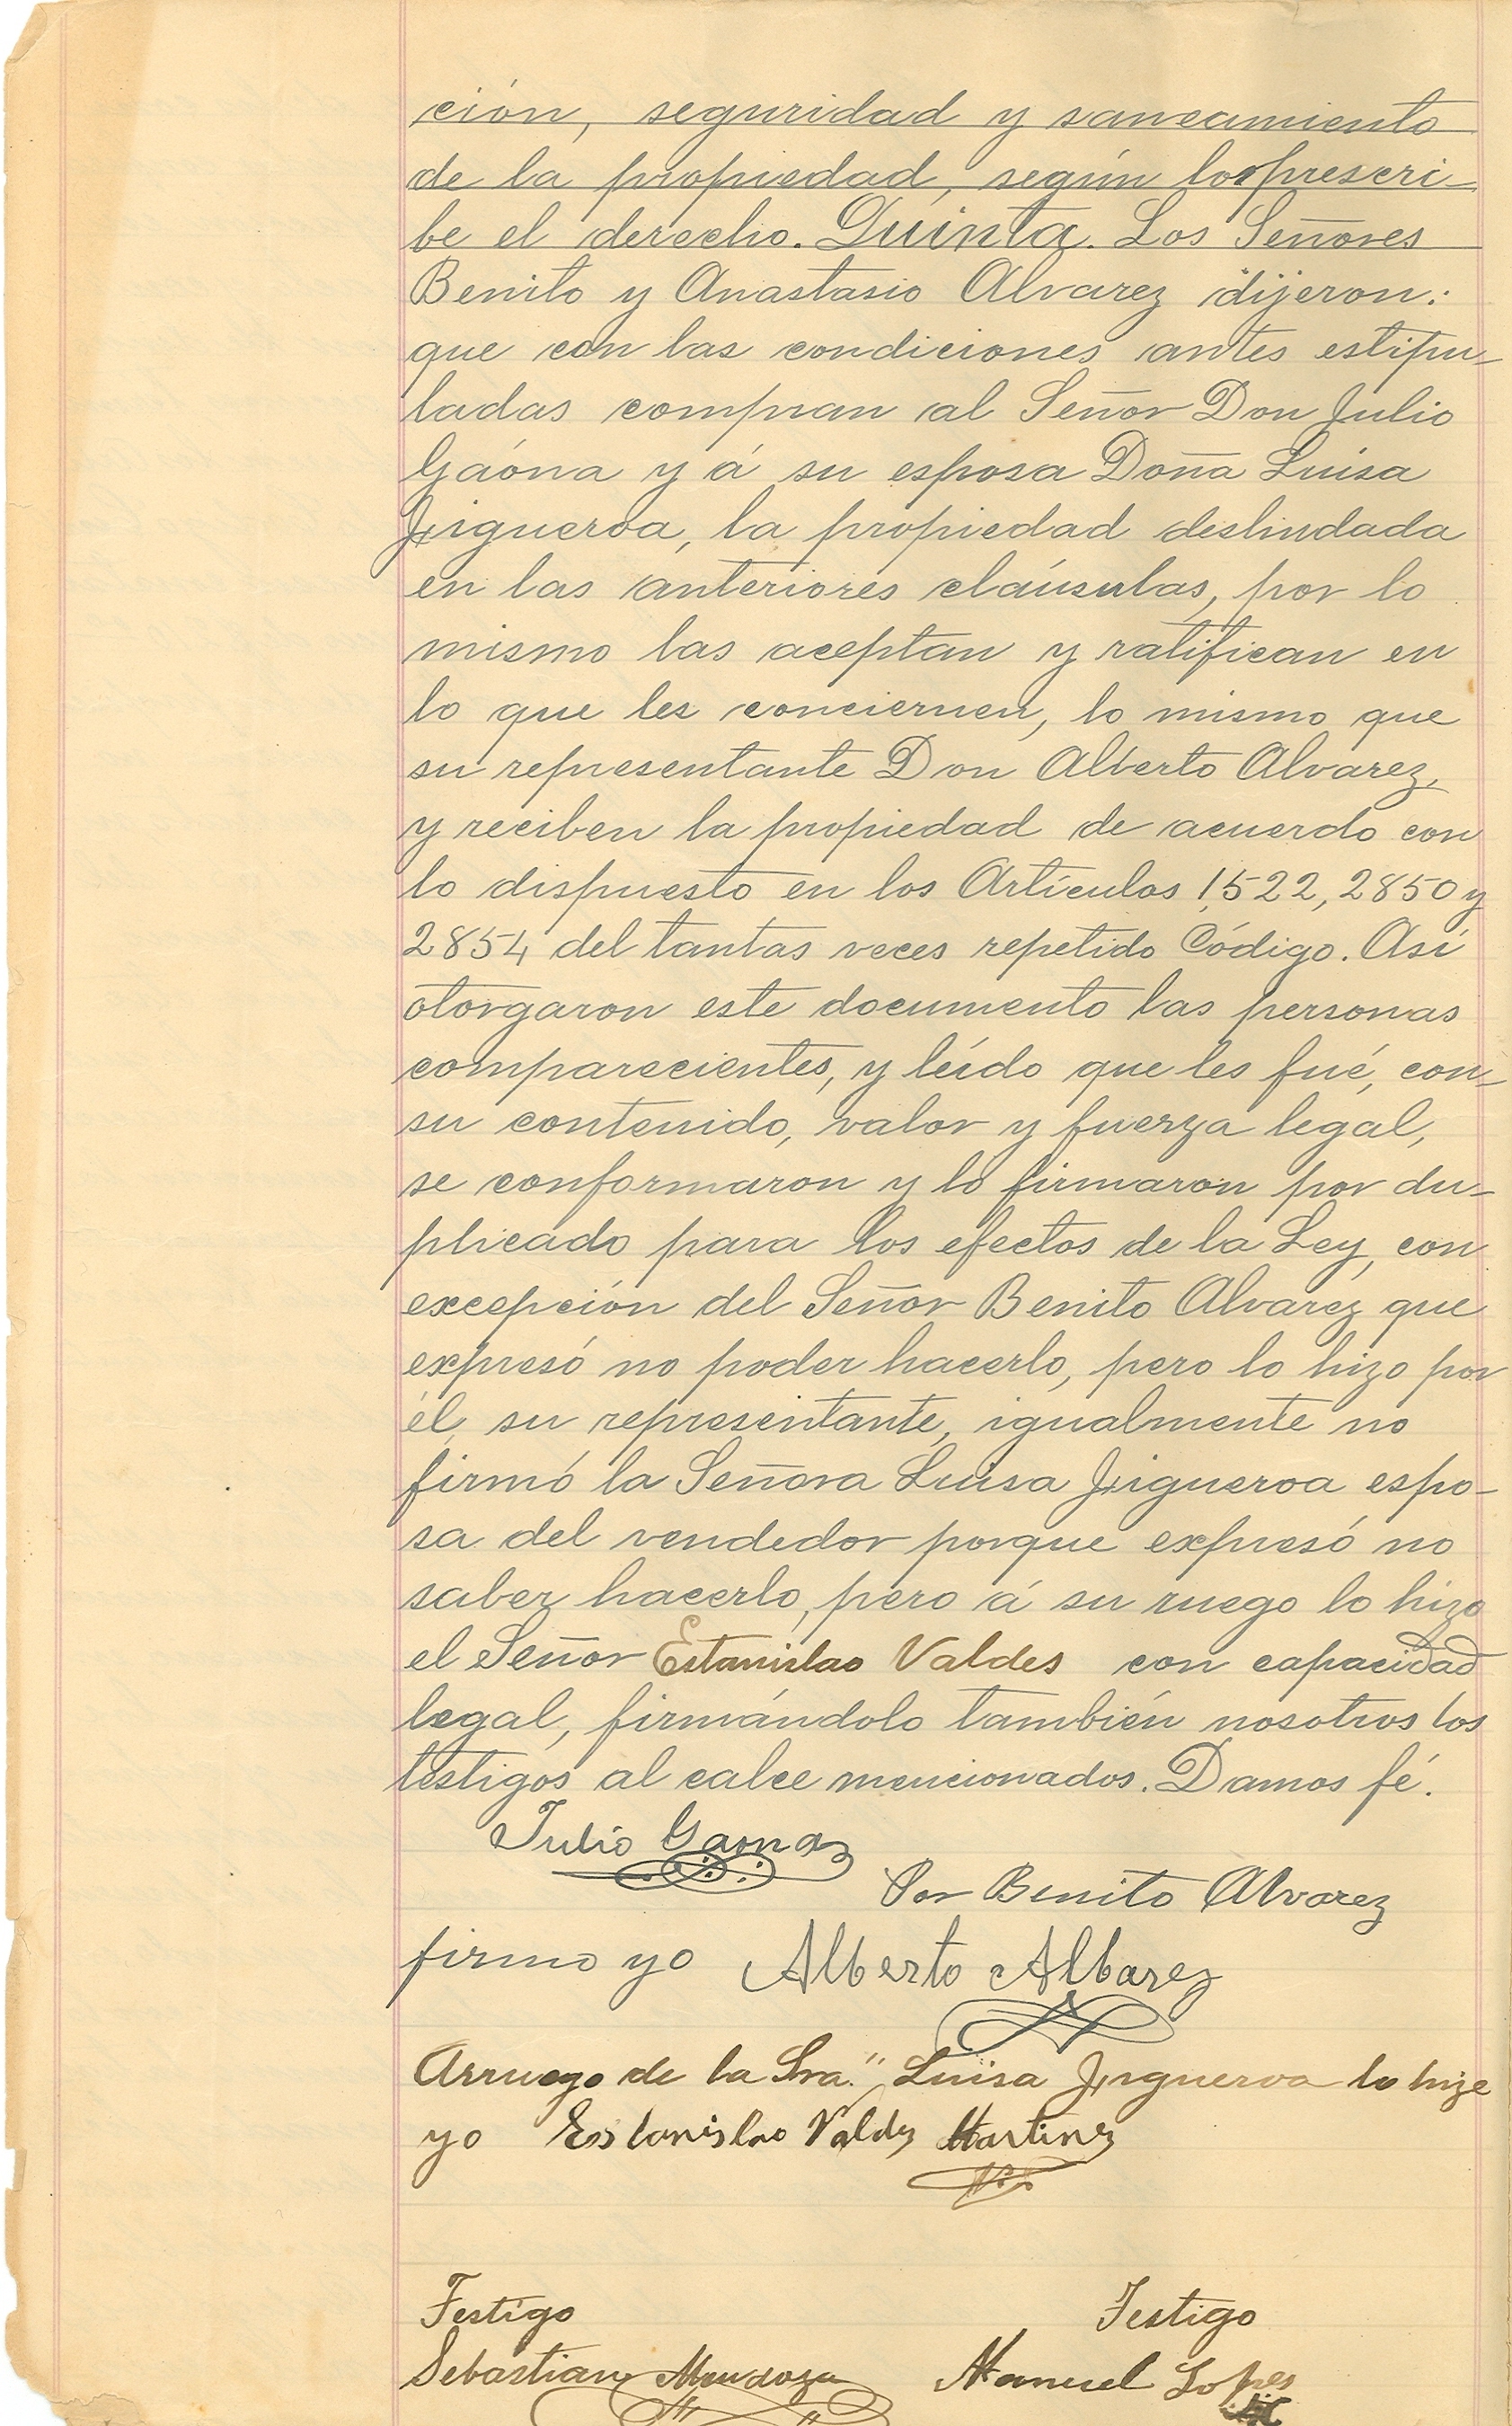 ción, seguridad y saneamiento
de la propiedad, según los prescri-
be el derecho. Quinta. Los Señores
Benito y Anastasio Alvarez dijeron:
que con las condiciones antes estipu-
ladas compran al Señor Don Julio
Gaóna y á su esposa Doña Luisa
Jigueroa, la propiedad deslindada
en las anteriores claúsulas, por lo
mismo las aceptan y ratifican en
lo que les conciernen, lo mismo que
su representante Don Alberto Alvarez,
y reciben la propiedad de acuerdo con
lo dispuesto en los Artículos 1,522, 2850 y
2854 del tantas veces repetido Código. Así
otorgaron este documento las personas
comparecientes, y leído que les fué, con-
su contenido, valor y fuerza legal,
se conformaron y lo firmaron por du-
plicado para los efectos de la Ley, con
excepción del Señor Benito Alvarez que
expresó no poder hacerlo, pero lo hizo por
él, su representante, igualmente no
firmó la Señora Luisa Jigueroa espo-
sa del vendedor porque expresó no
saber hacerlo, pero á su ruego lo hizo
el Señor Estanislao Valdes con capacidad
legal, firmándolo también nosotros los
testigos al calce mencionados. Damos fé.
Julio Gaona
Por Benito Alvarez
firmo yo Alberto Albarez
Arruego de la Sra." Luisa Jigueroa lo hize
yo Estanislao Valdez Martinez
Testigo Testigo
Sebastian Mendoza Manuel Lopes